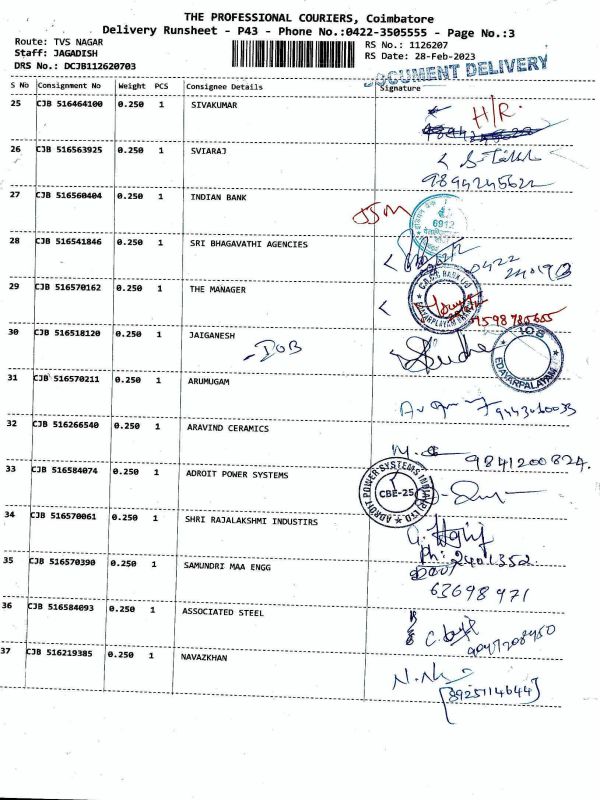 THE PROFESSIONAL COURIERS, Coimbatore
Delivery Runsheet - P43 - Phone No.:0422-3505555 - Page No.:3
Route: TVS NAGAR
Staff: JAGADISH
DRS No.: DCJB112620703
RS No.: 1126207
RS Date: 28-Feb-2023
DOCUMENT DELIVERY
S No Consignment No Weight PCS Consignee Details Signature
25 CJB 516464100 0.250 1 SIVAKUMAR H/R.
26 CJB 516563925 0.250 1 SVIARAJ
9894245622
27 CJB 516560404 0.250 1 INDIAN BANK
6913
28 CJB 516541846 0.250 1 SRI BHAGAVATHI AGENCIES
0422
29 CJB 516570162 0.250 1 THE MANAGER
9598785655
30 CJB 516518120 0.250 1 JAIGANESH
-IOB
IOB
EDAYARPALAYAM
31 CJB 516570211 0.250 1 ARUMUGAM
32 CJB 516266540 0.250 1 ARAVIND CERAMICS
9841200824.
33 CJB 516584074 0.250 1 ADROIT POWER SYSTEMS
ADROIT POWER SYSTEMS INDIA (P) LTD
CBE-25
34 CJB 516570061 0.250 1 SHRI RAJALAKSHMI INDUSTIRS
Ph: 2401352
35 CJB 516570390 0.250 1 SAMUNDRI MAA ENGG
63698971
36 CJB 516584093 0.250 1 ASSOCIATED STEEL
37 CJB 516219385 0.250 1 NAVAZKHAN
[8925114644]